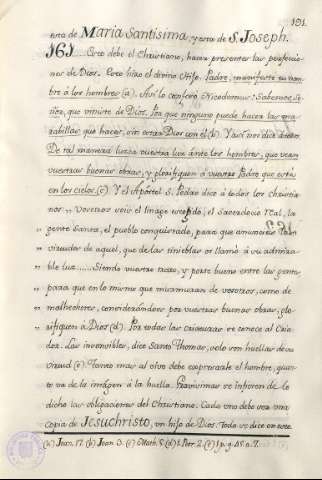 191.
una de Maria Santisima, y otra de S. Joseph.
161 .... Esto debe el Christiano, hacer presentes las perfeccio-
nes de Dios. Esto hizo el divino Hijo. Padre, manifesté tu nom-
bre á los hombres (a). Así lo confesó Nicodemus: Sabemos, Se-
ñor, que viniste de Dios. Por que ninguno puede hacer las ma-
rabillas que haces, sin estar Dios con el (b). Y así nos dice
De tal manera luzca vuestra luz ante los hombres, que vean
vuestras buenas obras, y glorifiquen á vuestro Padre que está
en los cielos. (c) Y el Apóstol S. Pedro dice á todos los christia-
nos „ Vosotros sois el linage escogido, el Sacerdocio Real, la
„ gente Santa, el pueblo conquistado, para que anuncieis las
„ virtudes de aquel, que de las tinieblas os llamó á su admira-
„ ble luz ..... Siendo vuestro trato, y porte bueno entre las gentes
„ para que en lo mismo que murmuran de vosotros, como de
„ malhechores, considerándoos por vuestras buenas obras, glo-
„ rifiquen á Dios (d). Por todas las criaturas se conoce al Cria-
dor. Las invensibles, dice Santo Thomas, solo son huellas de su
virtud (e). Tanto mas al vivo debe expresarle el hombre, quan-
to va de la imágen á la huella. Bravisimas se infieren de lo
dicho las obligaciones del Christiano. Cada uno debe ser una
copia de Jesuchristo, un hijo de Dios. Todo se dice en este
(a) Joan. 17. (b) Joan 3. (c) Math. 5. (d) 1. Petr. 2. (e) 1. p. q. 45. a. 7.